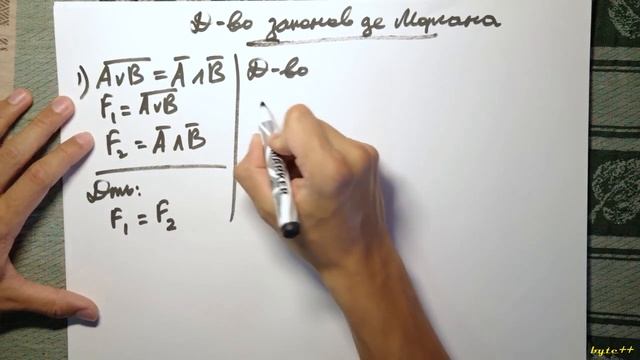 Д-во законов де Моргана
1) A∨B̅ = A̅ ∧ B̅
F₁ = A∨B̅
F₂ = A̅ ∧ B̅
Дть:
F₁ = F₂
Д-во
MARKER
byte++